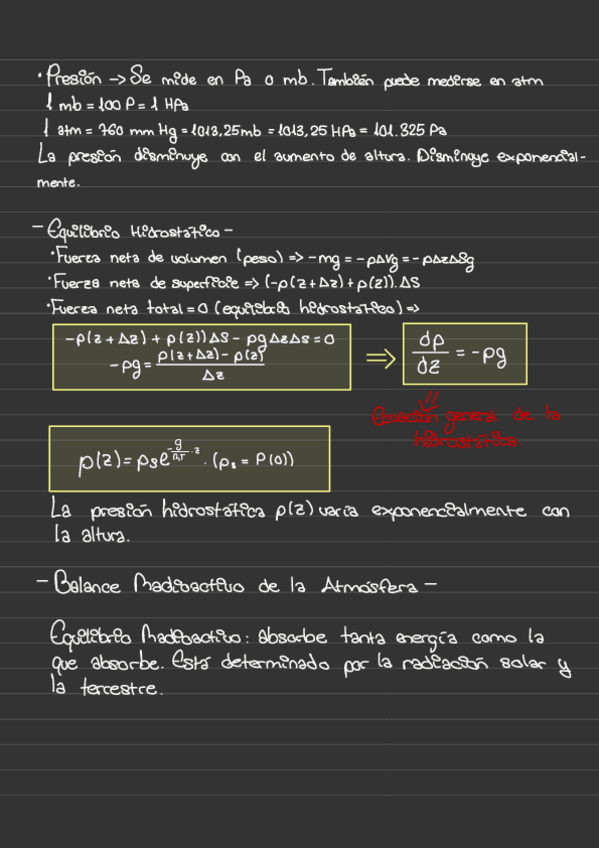 · Presión → Se mide en Pa o mb. También puede medirse en atm
1 mb = 100 P = 1 HPa
1 atm = 760 mm Hg = 1013,25mb = 1013,25 HPa = 101.325 Pa
La presión disminuye con el aumento de altura. Disminuye exponencial-
mente.
- Equilibrio Hidrostático -
· Fuerza neta de volumen (peso) => -mg = -ρΔVg = -ρΔzΔSg
· Fuerza neta de superficie => (-p(z+Δz) + p(z)).ΔS
· Fuerza neta total = 0 (equilibrio hidrostático) =>
-p(z+Δz) + p(z))ΔS - ρgΔzΔs = 0
-ρg = p(z+Δz) - p(z) / Δz
=> dp/dz = -ρg
Ecuación general de la
hidrostática.
p(z) = pse^-g/RdT·z . (ps = P(0))
La presión hidrostática p(z) varía exponencialmente con
la altura.
- Balance Radioactivo de la Atmósfera -
Equilibrio Radioactivo: absorbe tanta energía como la
que absorbe. Está determinado por la radiación solar y
la terrestre.